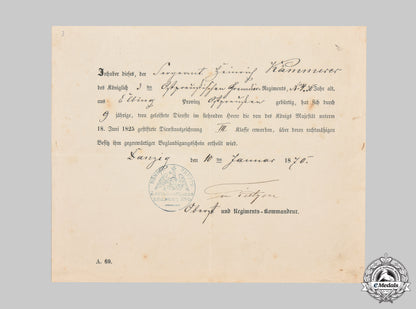 Inhaber dieses, der Sergeant Heinrich Kämmerer
des Königlich 3ten Ostpreußischen Grenadier-Regiments, No 4, 30 Jahr alt,
aus Elbing Provinz Ostpreußen gebürtig, hat sich durch
9 jährige, treu geleistete Dienste im stehenden Heere die von des Königs Majestät unterm
18. Juni 1825 gestiftete Dienstauszeichnung III. Klasse erworben, über deren rechtmäßigen
Besitz ihm gegenwärtiges Beglaubigungsschein ertheilt wird.
Danzig den 10ten Januar 1870.
Oberst und Regiments-Kommandeur.
A. 60.
eMedals